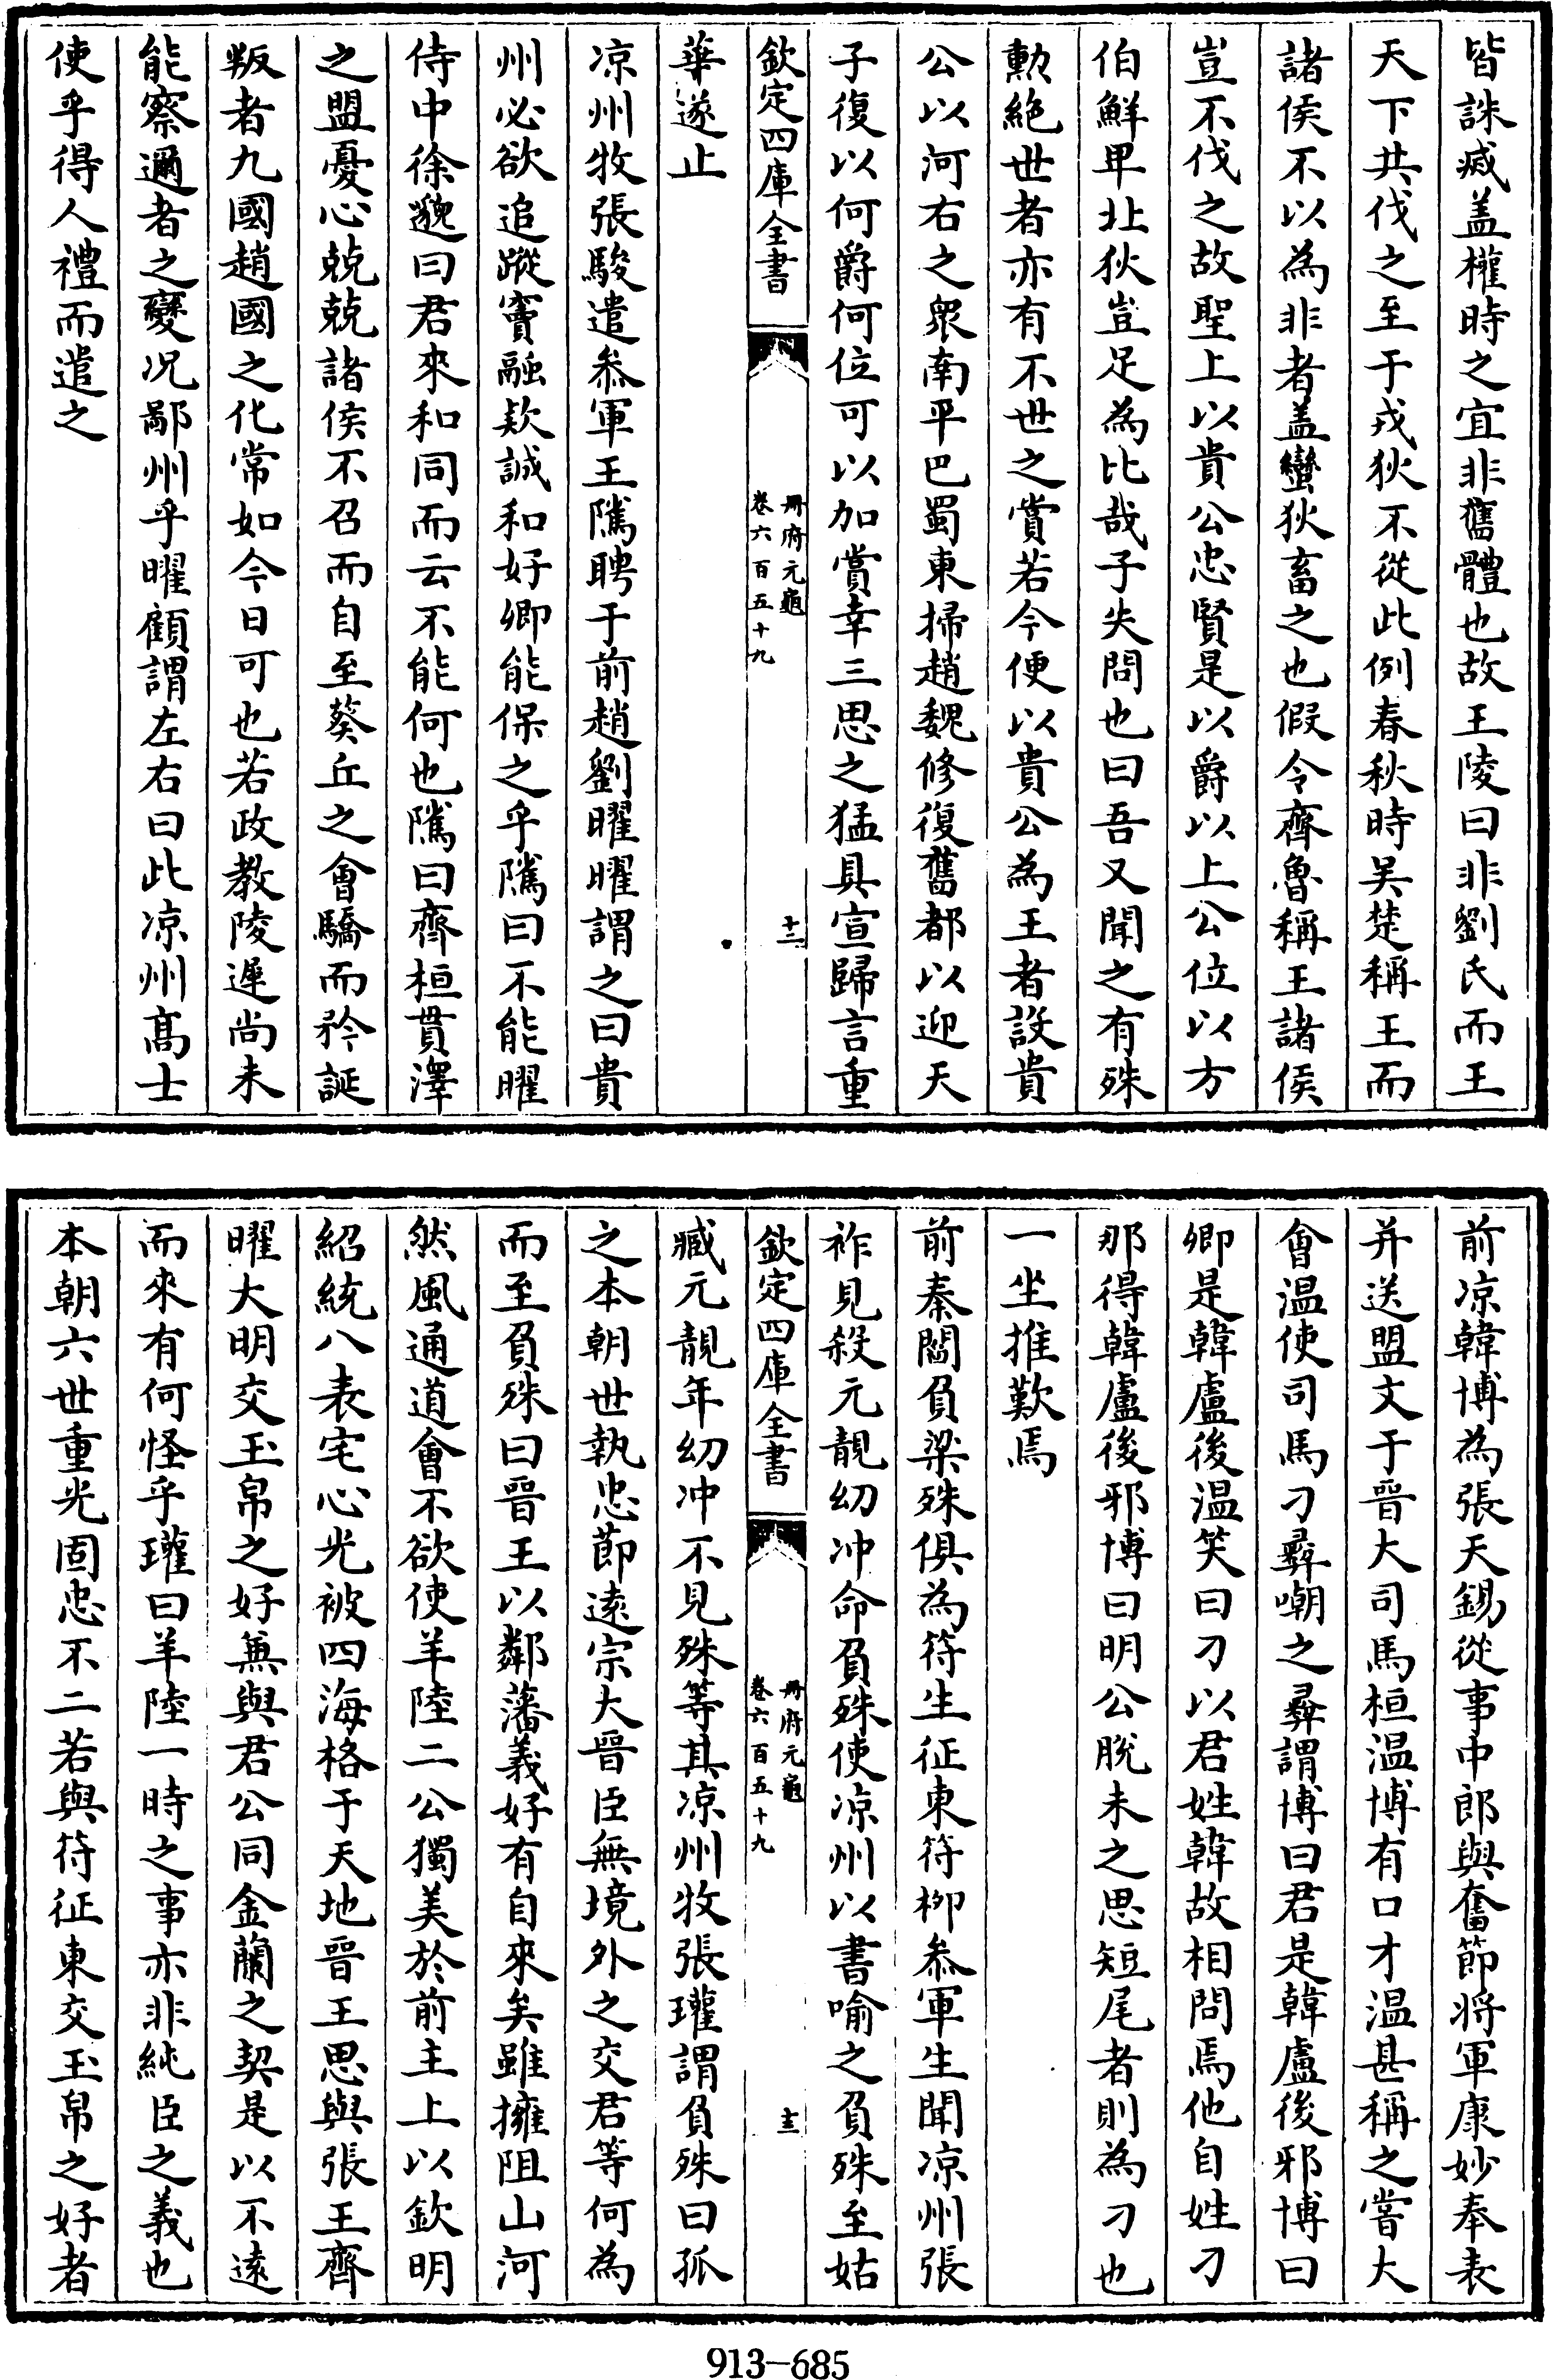 皆誅臧盖權時之宜非舊體也故王陵曰非劉氏而王
天下共伐之至于戎狄不從此例春秋時吴楚稱王而
諸侯不以為非者盖蠻狄畜之也假令齊魯稱王諸侯
豈不伐之故聖上以貴公忠賢是以爵以上公位以方
伯鮮卑北狄豈足為比哉子失問也曰吾又聞之有殊
勳絶世者亦有不世之賞若今便以貴公為王者設貴
公以河右之衆南平巴蜀東掃趙魏修復舊都以迎天
子復以何爵何位可以加賞幸三思之猛具宣歸言重
欽定四庫全書
冊府元龜
卷六百五十九
十二
華遂止
凉州牧張駿遣叅軍王隲聘于前趙劉曜曜謂之曰貴
州必欲追蹤竇融欵誠和好卿能保之乎隲曰不能曜
侍中徐邈曰君來和同而云不能何也隲曰齊桓貫澤
之盟憂心兢兢諸侯不召而自至葵丘之會驕而矜誕
叛者九國趙國之化常如今日可也若政教陵遲尚未
能察邇者之變况鄙州乎曜顧謂左右曰此凉州髙士
使乎得人禮而遣之
前凉韓博為張天錫從事中郎與奮節将軍康妙奉表
并送盟文于晉大司馬桓温博有口才温甚稱之嘗大
會温使司馬刁彛嘲之彛謂博曰君是韓盧後邪博曰
卿是韓盧後温笑曰刁以君姓韓故相問焉他自姓刁
那得韓盧後邪博曰明公脱未之思短尾者則為刁也
一坐推歎焉
前秦閻負梁殊俱為符生征東符柳叅軍生聞凉州張
祚見殺元靚幼冲命負殊使凉州以書喻之負殊至姑
欽定四庫全書
冊府元龜
卷六百五十九
十三
臧元靚年幼冲不見殊等其凉州牧張瓘謂負殊曰孤
之本朝世執忠節逺宗大晉臣無境外之交君等何為
而至負殊曰晉王以鄰藩義好有自來矣雖擁阻山河
然風通道會不欲使羊陸二公獨美於前主上以欽明
紹統八表宅心光被四海格于天地晉王思與張王齊
曜大明交玉帛之好兼與君公同金蘭之契是以不逺
而來有何怪乎瓘曰羊陸一時之事亦非純臣之義也
本朝六世重光固忠不二若與苻征東交玉帛之好者
913-685